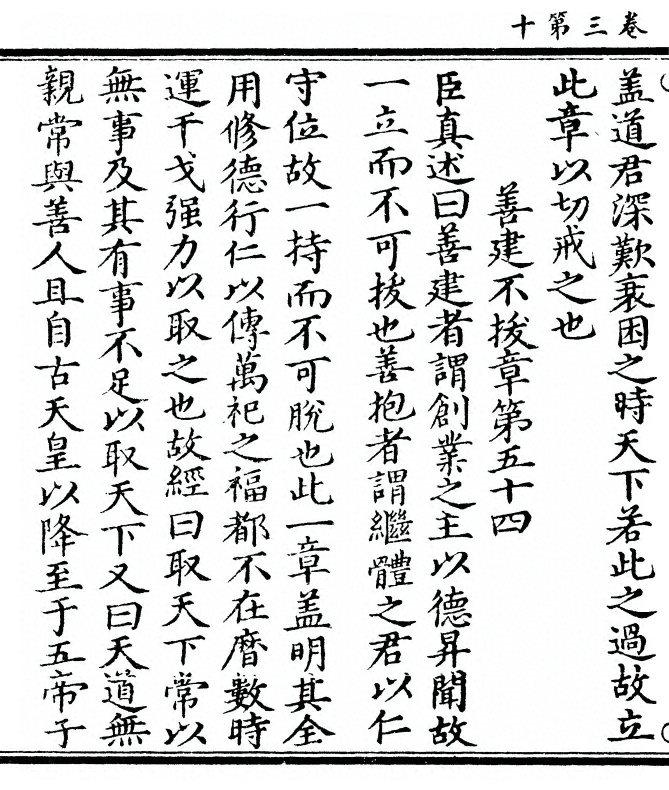 卷三第十
蓋道君深歎衰困之時天下若此之過故立
此章以切戒之也
善建不拔章第五十四
臣真述曰善建者謂創業之主以德昇聞故
一立而不可拔也善抱者謂繼體之君以仁
守位故一持而不可脫也此一章蓋明其全
用修德行仁以傳萬祀之福都不在曆數時
運干戈强力以取之也故經曰取天下常以
無事及其有事不足以取天下又曰天道無
親常與善人且自古天皇以降至于五帝子